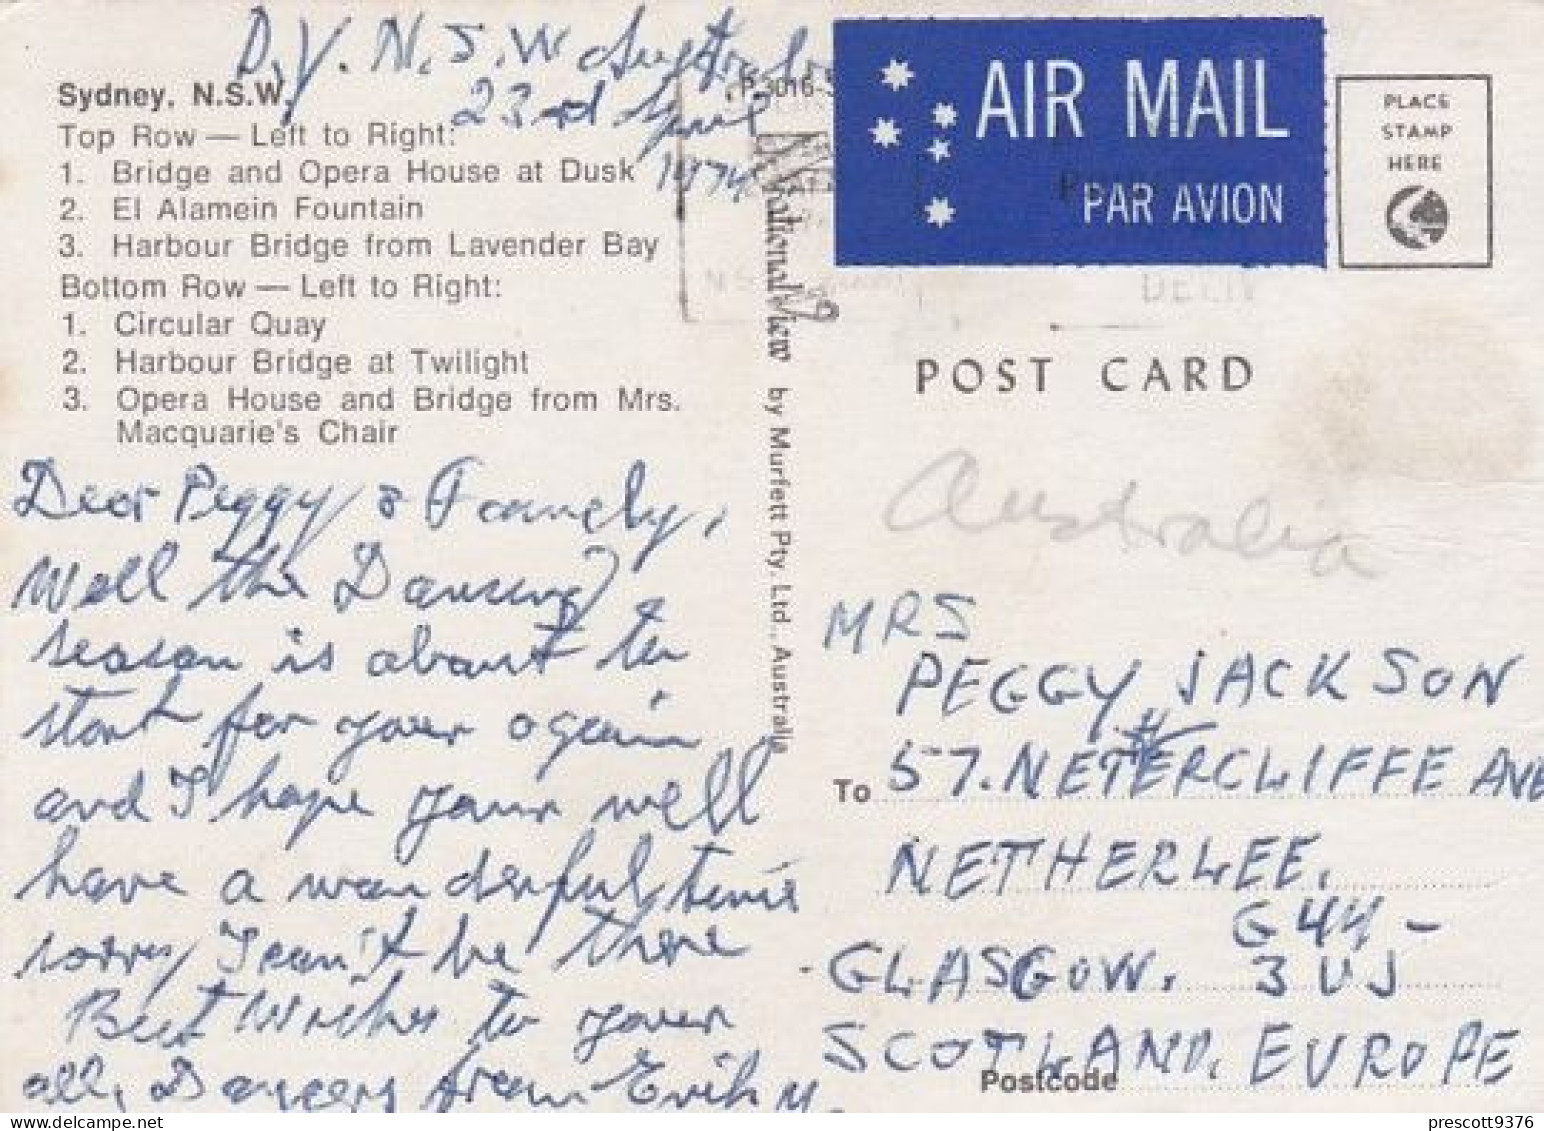 D.Y. N.S.W Australia
23rd April
1974
Sydney, N.S.W.
Top Row — Left to Right:
1. Bridge and Opera House at Dusk
2. El Alamein Fountain
3. Harbour Bridge from Lavender Bay
Bottom Row — Left to Right:
1. Circular Quay
2. Harbour Bridge at Twilight
3. Opera House and Bridge from Mrs.
Macquarie's Chair
Dear Peggy & Family,
Well the Dancing
season is about to
start for your again
and I hope your well
have a wonderful time
sorry I can't be there
Best Wishes to your
all, Dancers from Erik M.
P.3016-
NationalView by Murfett Pty. Ltd., Australia
AIR MAIL
PAR AVION
PLACE
STAMP
HERE
DELIV
POST CARD
Australia
MRS
PEGGY JACKSON
To 57. NETERCLIFFE AVE
H
NETHERLEE.
G44 -
GLASGOW. 3UJ
SCOTLAND, EUROPE
Postcode
prescott9376